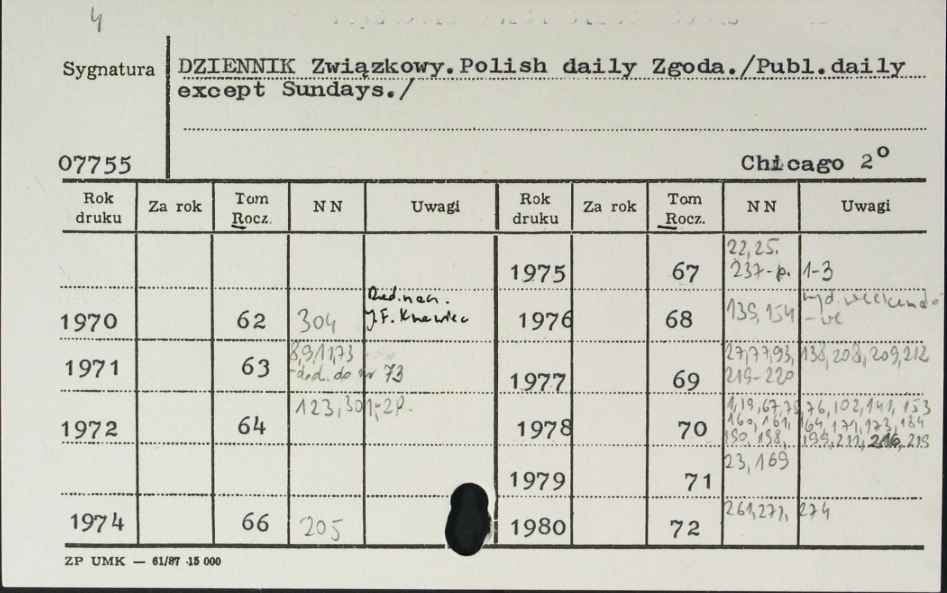 4
Sygnatura
DZIENNIK Związkowy. Polish daily Zgoda./Publ. daily
except Sundays./
07755
Chicago 2º
Rok druku Za rok Tom Rocz. NN Uwagi Rok druku Za rok Tom Rocz. NN Uwagi
22,25.
1975 67 237-p. 1-3
Red. nacz.
1970 62 304 J.F. 1976 68 139, 154 wyd. weekendo-
-we
8,9,11,73 27,77,93, 138, 208, 209, 212
1971 63 -dod. do nr 73 1977 69 219-220
123, 301,-2p. 1,19,67,75,76,102,141,153
1972 64 1978 70 160, 161, 164, 171, 173, 184
190, 198, 199, 211, 216, 219
23, 169
1979 71
261, 271, 274
1974 66 205 1980 72
ZP UMK — 61/87 15 000